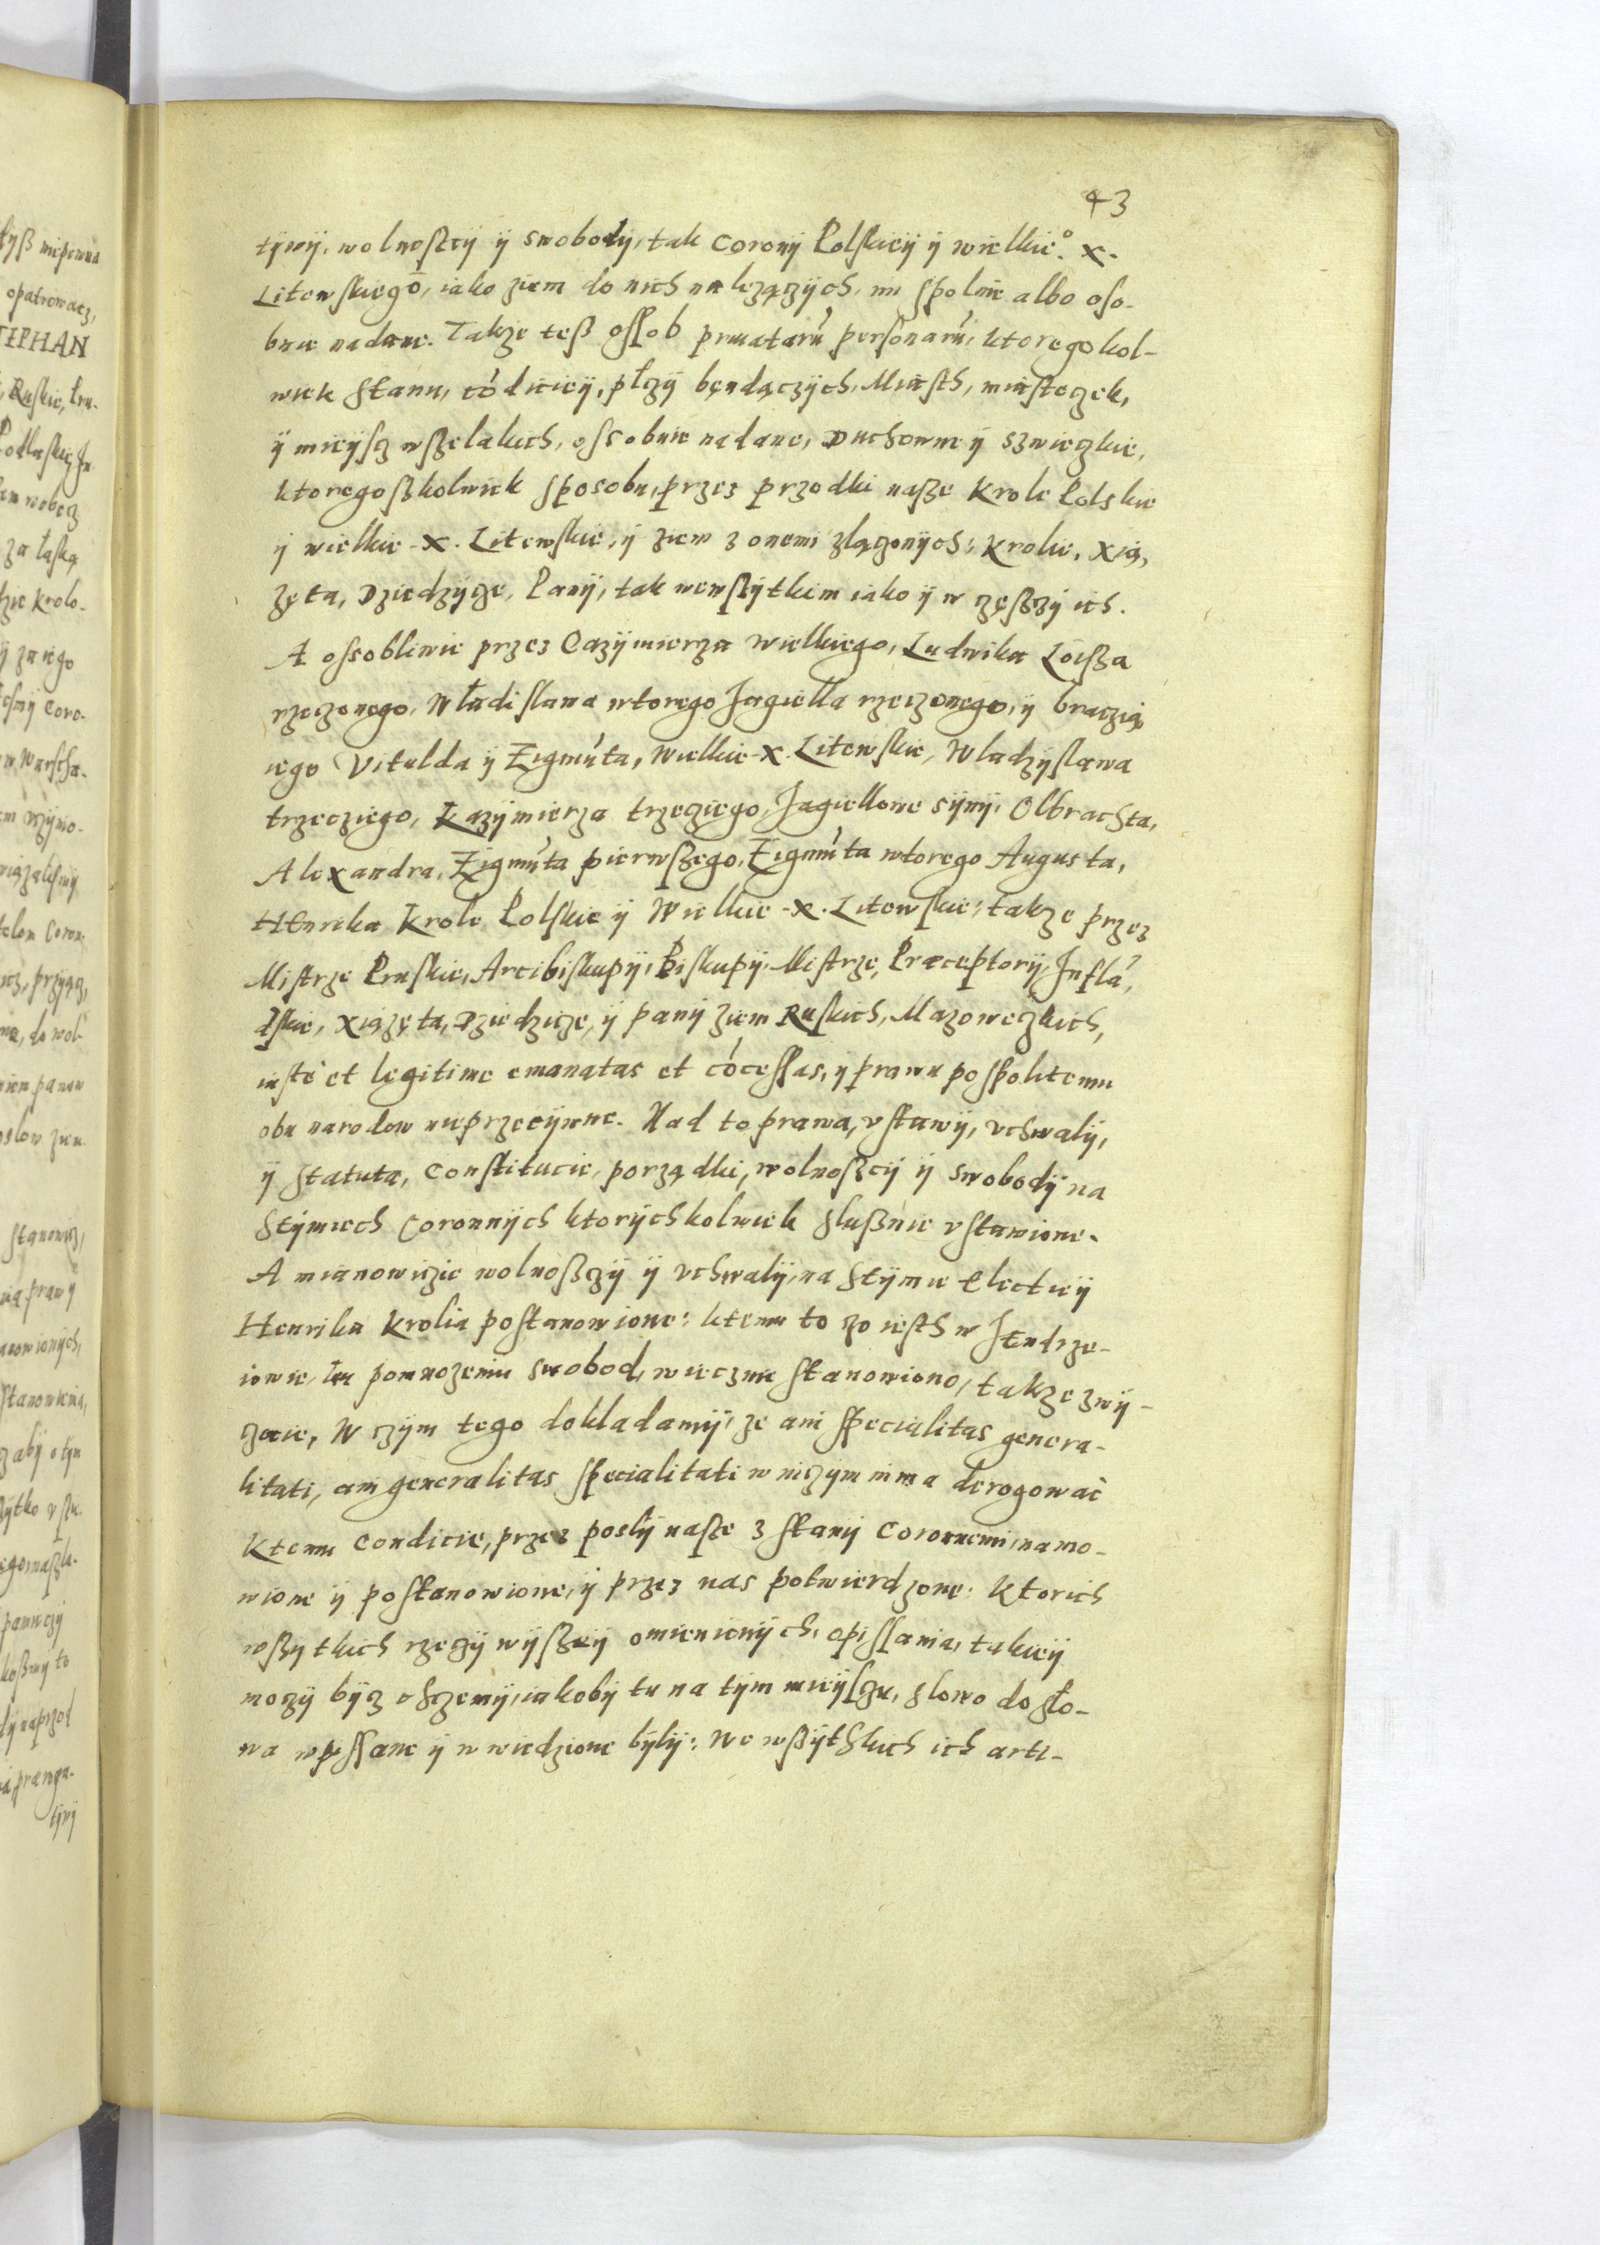 43
tÿwÿ, wolnoſcÿ ÿ swobodÿ, tak Coronÿ Polſkieÿ ÿ wielkie.° X.
Litewſkiego, iako ziem do nich nalezączÿch, im ſpolnie albo oſo-
bnie nadane. Takze teß oſſob priuatarū personarū, ktorego kol-
wiek Stanu, códicieÿ, płczÿ będączÿch, Miaſth, miaſteczek,
ÿ mieÿſcz wſzelakich, oſsobnie nadane, Duchowne ÿ szwieczkie,
ktoregoſzkolwiek ſposobu, przez przodki naſze krole Polskie
ÿ wielkie X. Litewſkie, ÿ ziem z onemi złączonÿch: krolie, Xią,
zęta, Dziedzÿcze, Panÿ, tak wewſzÿtkim iako ÿ w częſzczÿ ich.
A oſsobliwie przez Cazÿmierza wielkiego, Ludwika Loiſza
rzeczonego, Władislawa wtorego Jagiella rzeczonego, ÿ braczią
iego Vitulda ÿ Zigmūta, wielkie X. Litewſkie, Wladzÿslawa
trzecziego, Kazÿmierza trzecziego, Jagiellowe sÿnÿ, Olbrachta,
Alexandra, Zigmūta pierwſzego, Zigmūta wtorego Augusta,
Henrika krole Polſkie ÿ Wielkie X. Litewſkie: takze przez
Miſtrze Pruſkie, Arcibiſkupÿ, Biſkupÿ, Miſtrze, Præceptorÿ, Inflā,
dſkie, Xiązęta, Dziedzicze, ÿ panÿ ziem Ruſkich, Mazoweczkich,
iuſte et legitime emanatas et cóceſſas, ÿ prawu poſpolitemu
obu narodow nieprzeciwne. Nad to prawa, vſtawÿ, vchwalÿ,
ÿ ſtatuta, Conſtitucie, porządki, wolnoſzcÿ ÿ swobodÿ na
Sÿmiech Coronnÿch ktorÿchkolwiek ſlußnie vſtawione.
A mianowiczie wolnoſzczÿ ÿ vchwalÿ, na Sÿmie Electieÿ
Henrika krolia poſtanowione: ktemu to czo ieſth w Jendrze-
iowie, ku pomnozeniu swobod, wiecznie ſtanowiono, takze zwÿ-
czaie, W czÿm tego dokladamÿ, ze ani ſpecialitas genera-
litati, ani generalitas ſpecialitati w niczÿm nima derogowac
Ktemu Condicie, przez poslÿ naſze z ſtanÿ Coronnemi, namo-
wione ÿ poſtanowione, ÿ przez nas potwierdzone: ktorich
wßytkich rzeczÿ wÿſzeÿ omieniónÿch, opiſſania, takieÿ
moczÿ bÿcz chczemÿ, iakobÿ tu na tÿm mieÿſczu, slowo do slo-
wa wpiſſane ÿ wwiedzione bÿlÿ: We wßÿtſkich ich arti-